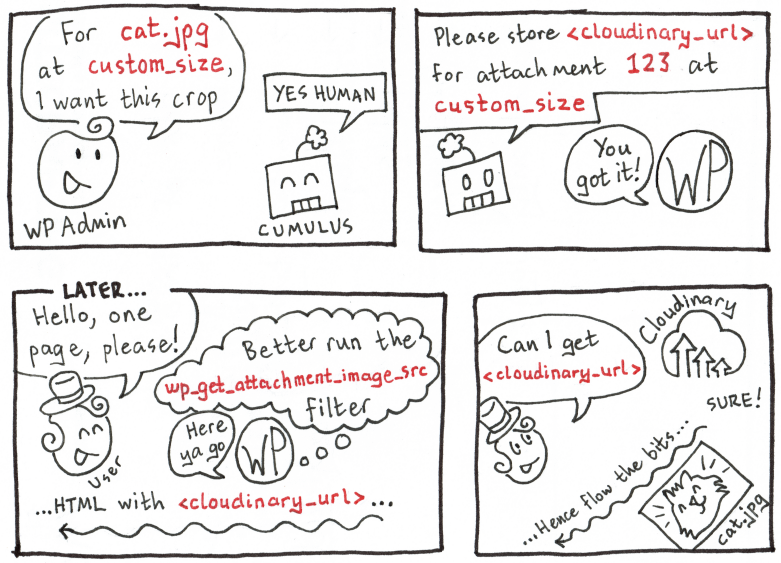 For cat.jpg
at custom_size,
I want this crop
YES HUMAN
WP Admin
CUMULUS
Please store <cloudinary_url>
for attachment 123 at
custom_size
You
got it!
WP
LATER...
Hello, one
page, please!
User
Better run the
wp_get_attachment_image_src
filter
Here
ya go
WP
...HTML with <cloudinary_url>...
Can I get
<cloudinary_url>
Cloudinary
SURE!
...Hence flow the bits...
cat.jpg